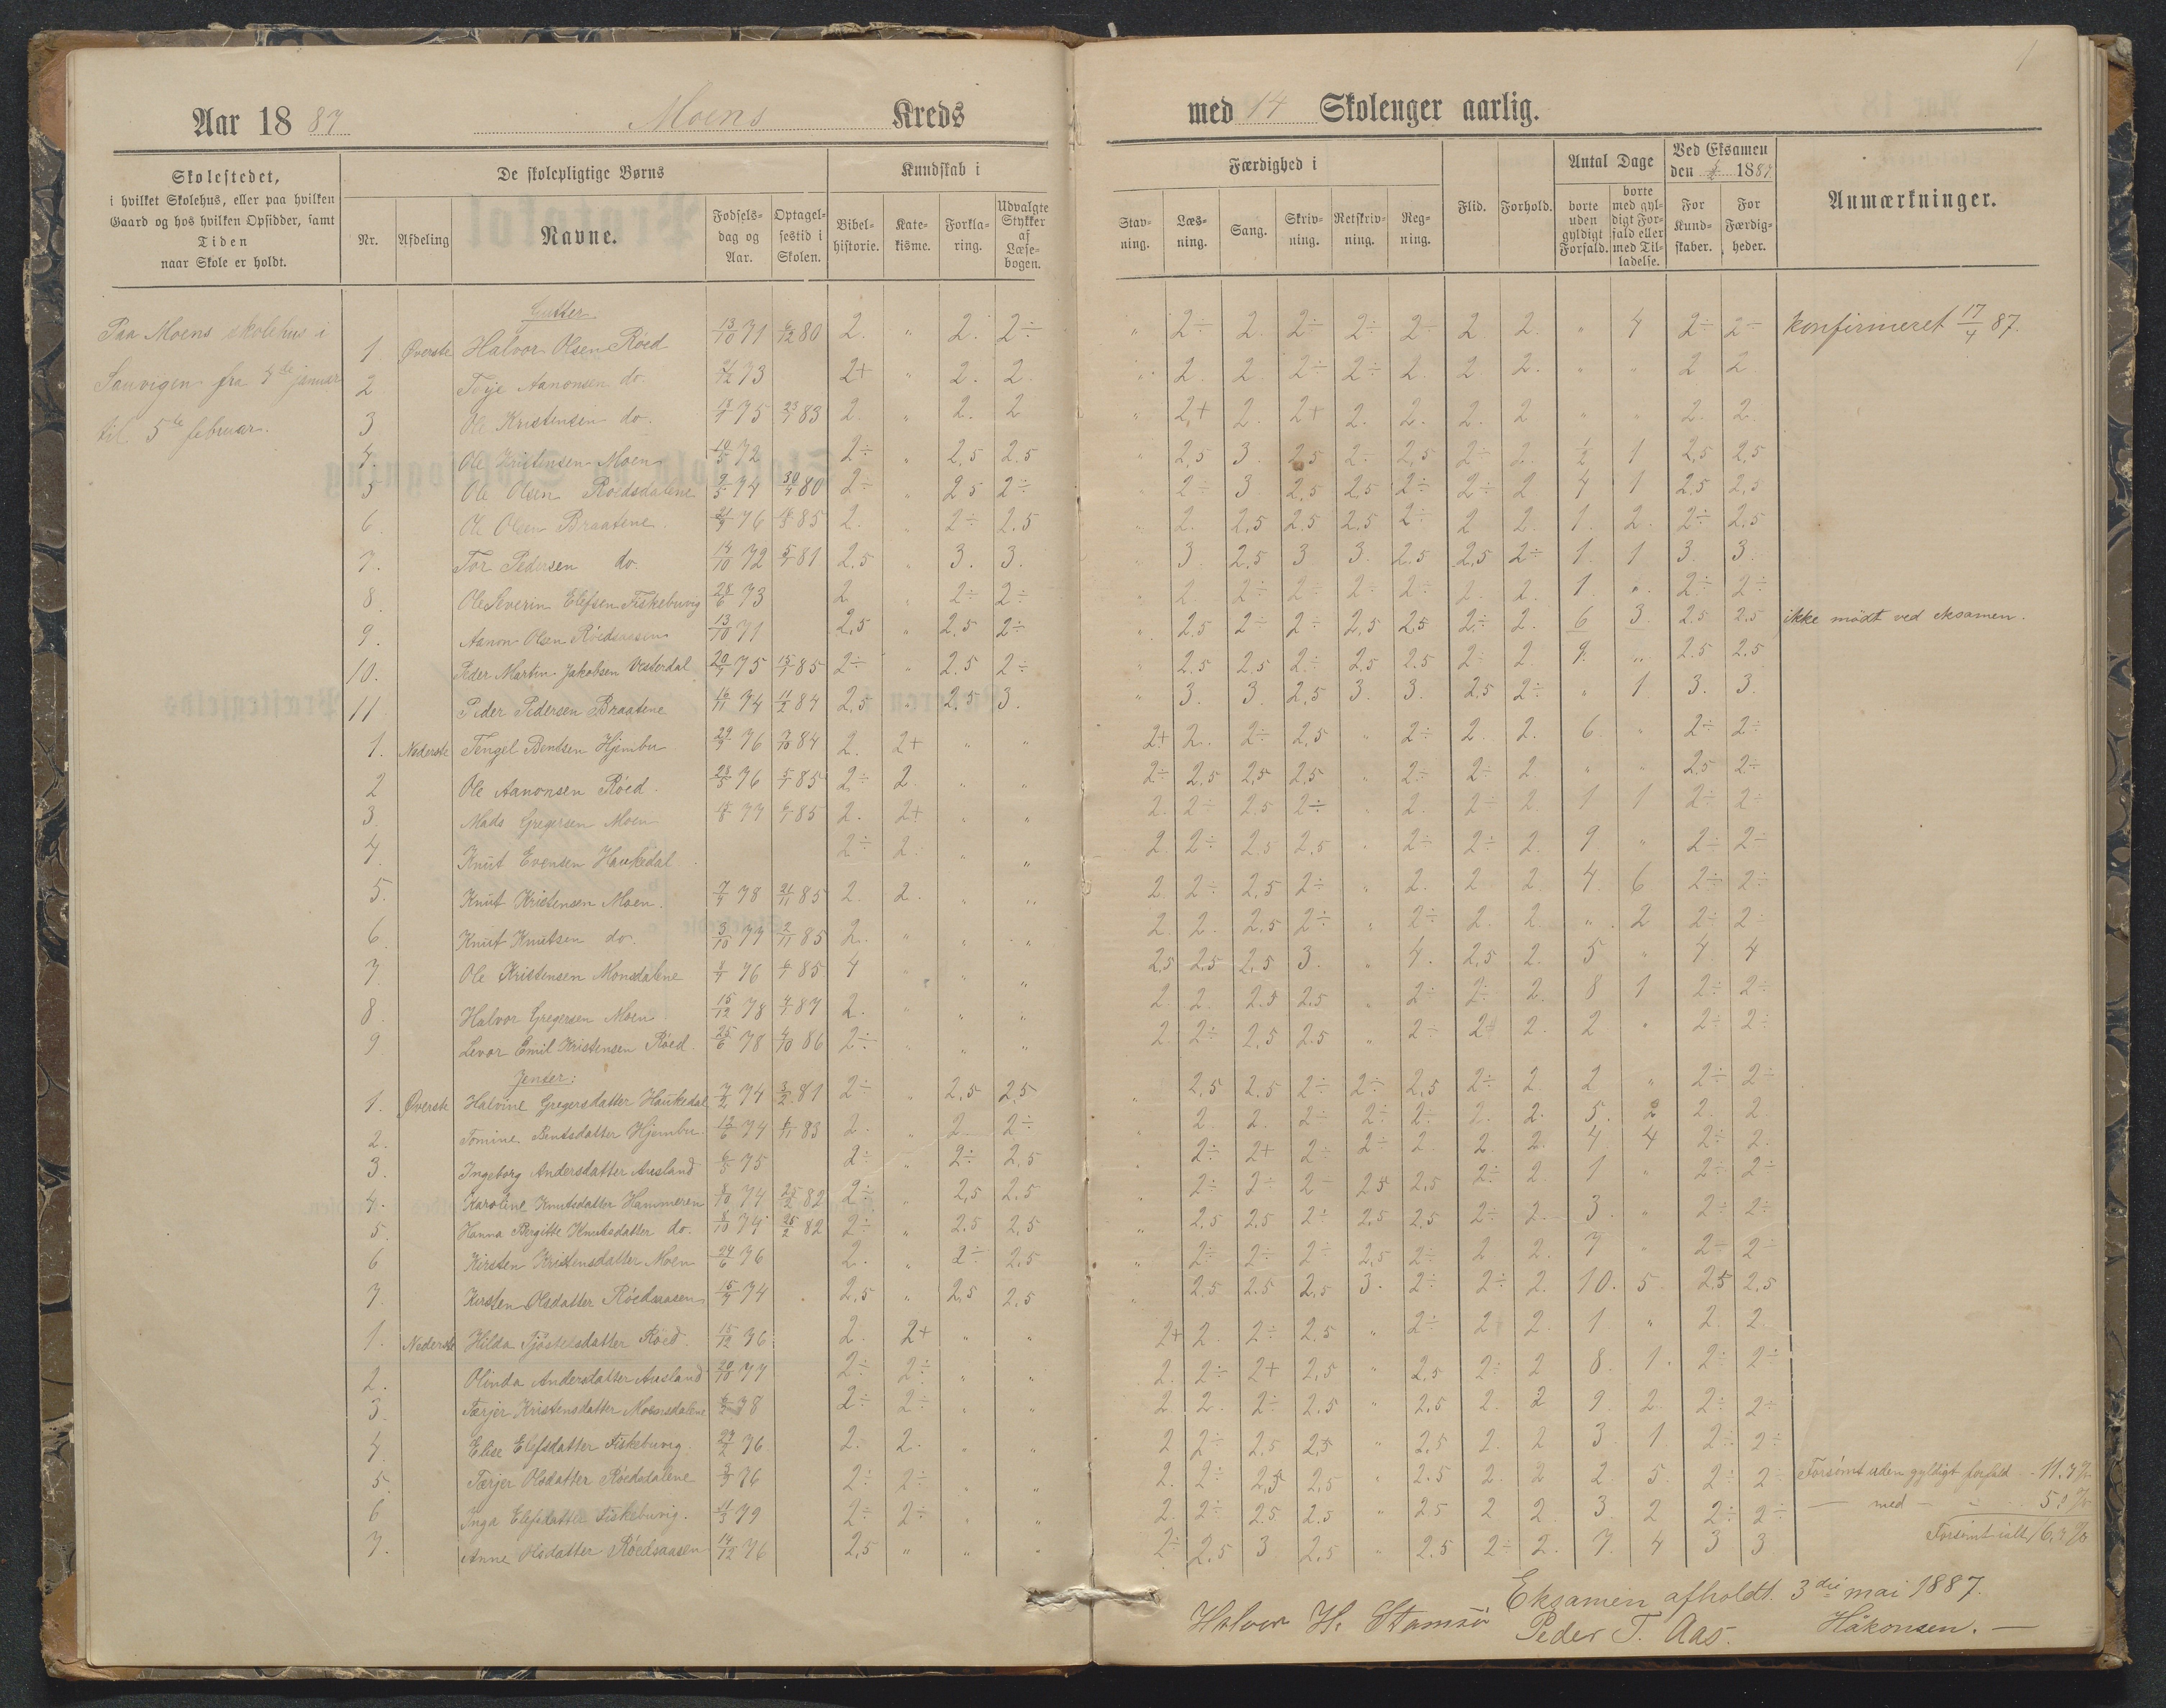 1
Aar 1887 Moens Kreds med 14 Skolenger aarlig.
Skolestedet, i hvilket Skolehus, eller paa hvilken Gaard og hos hvilken Opsidder, samt Tiden naar Skole er holdt.
De skolepligtige Børns
Nr. Afdeling Navne. Fødselsdag og Aar. Optagelsestid i Skolen.
Kundskab i
Bibelhistorie. Katekisme. Forklaring. Udvalgte Stykker af Læsebogen.
Færdighed i
Stavning. Læsning. Sang. Skrivning. Retskrivning. Regning.
Flid. Forhold.
Antal Dage
borte uden gyldigt Forfald. borte med gyldigt Forfald eller med Tilladelse.
Ved Eksamen den 3/5 1887
For Kundskaber. For Færdigheder.
Anmærkninger.
Paa Moens skolehus i
Sauvigen fra 4de januar
til 5te februar.
Gutter
1. Øverste Halvor Olsen Röed 13/10 71 6/12 80 2. " 2. 2÷ " 2÷ 2. 2÷ 2÷ 2÷ 2 2. " 4 2÷ 2÷ konfirmeret 17/4 87.
2 Terje Aanonsen do. 73 2+ " 2. 2. " 2. 2. 2÷ 2÷ 2. 2. 2. " " 2 2
3 Ole Kristensen do. 18/7 75 23/1 83 2. " 2. 2 " 2+ 2. 2+ 2. 2. 2. 2 " " 2. 2.
4 Ole Kristensen Moen 10/5 72 2÷ " 2,5 2.5 " 2,5 3. 2,5 2÷ 2,5 2÷ 2. 1/2 1 2,5 2,5
5 Ole Olsen Roedsdalene 9/5 74 30/4 80 2÷ " 2.5 2÷ " 2÷ 3. 2.5 2,5 2÷ 2÷ 2 4 1 2.5 2,5
6. Ole Olsen Braatene. 21/9 76 85 2. " 2÷ 2.5 " 2. 2,5 2,5 2.5 2÷ 2 2. 1. 2. 2÷ 2,5
7. Tor Pedersen do. 14/10 72 5/1 81 2.5 " 3. 3. " 3. 2,5 3 3. 2,5 2,5 2÷ 1. 1 3. 3.
8. Ole Severin Elefsen Fiskebuvig 28/6 73 2 " 2÷ 2÷ " 2. 2÷ 2÷ 2÷ 2÷ 2. 2. 1. " 2÷ 2÷
9. Aanon Olsen Röedsaasen 13/10 71 2,5 " 2.5 2÷ " 2.5 2÷ 2÷ 2,5 2,5 2÷ 2. 6 3. 2.5 2.5 ikke mödt ved eksamen.
10. Peder Martin Jakobsen Vesterdal 20/9 75 15/1 85 2÷ " 2.5 2÷ " 2.5 2.5 2÷ 2,5 2.5 2÷ 2. 9. " 2.5 2.5
11 Peder Pedersen Braatene 16/11 74 11/2 84 2,5 " 2.5 3. " 3. 3. 2,5 3. 3. 2,5 2÷ " 1. 3. 3.
1. Nederste Tengel Bentsen Hjembu 29/9 76 7/10 84 2. 2+ " " 2+ 2. 2÷ 2,5 " 2÷ 2. 2. 6. " 2÷ 2÷
2 Ole Aanonsen Röed. 28/5 76 5/1 85 2÷ 2. " " 2÷ 2.5 2,5 2.5 " 2÷ 2÷ 2. " " 2,5 2÷
3. Mads Gregersen Moen 77 6/1 85 2. 2+ " " 2. 2÷ 2.5 2÷ " 2. 2÷ 2. 1 1 2÷ 2÷
4. Knut Evensen Haukedal 2÷ 2. " " 2. 2÷ 2.5 2,5 " 2÷ 2÷ 2. 9 " 2÷ 2÷
5. Knut Kristensen Moen. 7/4 78 21/11 85 2. 2. " " 2. 2÷ 2,5 2÷ " 2. 2 2 4. 6 2÷ 2÷
6. Knut Knutsen do. 3/10 77 2/11 85 2. " " " 2. 2. 2.5 2÷ " 2÷ 2. 2. " 2 2÷ 2÷
7. Ole Kristensen Monsdalene 76 6/1 85 4 " " " 2,5 2,5 2,5 3. " 4. 2,5 2. 5 " 4 4
8. Halvor Gregersen Moen 15/12 78 4/1 87 2. " " " 2. 2. 2.5 2.5 " 2÷ 2÷ 2. 8 1 2÷ 2÷
9 Levor Emil Kristensen Röed. 25/6 78 4/10 86 2÷ " " " 2. 2÷ 2,5 2.5 " 2÷ 2÷ 2. 2 " 2÷ 2÷
Jenter:
1. Øverste Halvine Gregersdatter Haukedal 7/2 74 3/2 81 2÷ " 2,5 2,5 " 2,5 2.5 2÷ 2÷ 2,5 2÷ 2. 2 " 2÷ 2÷
2. Tomine Bentsdatter Hjembu 12/6 74 6/11 83 2. " 2. 2÷ " 2. 2. 2÷ 2÷ 2÷ 2. 2. 5. 2 2. 2.
3. Ingeborg Andersdatter Ausland 6/5 75 2÷ " 2÷ 2,5 " 2÷ 2+ 2÷ 2÷ 2 2. 2. 4 4 2÷ 2.
4. Karoline Knutsdatter Hammeren 8/10 74 25/2 82 2÷ " 2,5 2.5 " 2÷ 2÷ 2÷ 2.5 2,5 2÷ 2. 1 " 2÷ 2÷
5. Hanna Bergitte Knutsdatter do. 8/10 74 25/2 82 2÷ " 2.5 2,5 " 2,5 2.5 2÷ 2,5 2,5 2÷ 2. 3. " 2÷ 2÷
6 Kirsten Kristensdatter Moen 24/6 76 2. " 2÷ 2.5 " 2÷ 2÷ 2÷ 2,5 2÷ 2. 2. 7 " 2÷ 2÷
7. Kirsten Olsdatter Röedsaasen 15/9 74 2,5 " 2.5 2,5 " 2.5 2.5 2,5 3. 2÷ 2÷ 2. 10. 5. 2,5 2,5
1. Nederste Hilda Tjöstelsdatter Röed. 15/12 76 2. 2+ " " 2+ 2. 2÷ 2,5 " 2÷ 2 2. 1 " 2. 2.
2. Olinda Andersdatter Ausland 20/10 77 2÷ 2÷ " " 2. 2÷ 2+ 2,5 " 2,5 2÷ 2 8. 1. 2÷ 2÷
3. Tærjer Kristensdatter Moensdalene 78 2÷ 2÷ " " 2. 2. 2÷ 2.5 " 2,5 2. 2 9. 2. 2÷ 2÷
4. Elise Elefsdatter Fiskebuvig. 29/2 76 2. 2. " " 2 2÷ 2,5 2,5 " 2,5 2. 2 3. 1. 2÷ 2÷
5. Tærjer Olsdatter Röedsdalene 76 2÷ 2÷ " " 2. 2÷ 2,5 2,5 " 2.5 2. 2 2. 5. 2÷ 2÷ Forsömt uden gyldigt forfald
6 Inga Elefsdatter Fiskebuvig. 79 2÷ 2÷ " " 2. 2÷ 2.5 2.5 " 2.5 2 2. 3. 2 2÷ 2÷ — med —
7. Anne Olsdatter Röedsaasen 14/12 76 2,5 " " " 2÷ 2,5 3 2,5 " 2.5 2÷ 2. 7. 4 3 3 Forsömt ialt
Eksamen afholdt. 3die mai 1887.
Halvor H. Stamsö Peder T. Aas. Håkonsen.